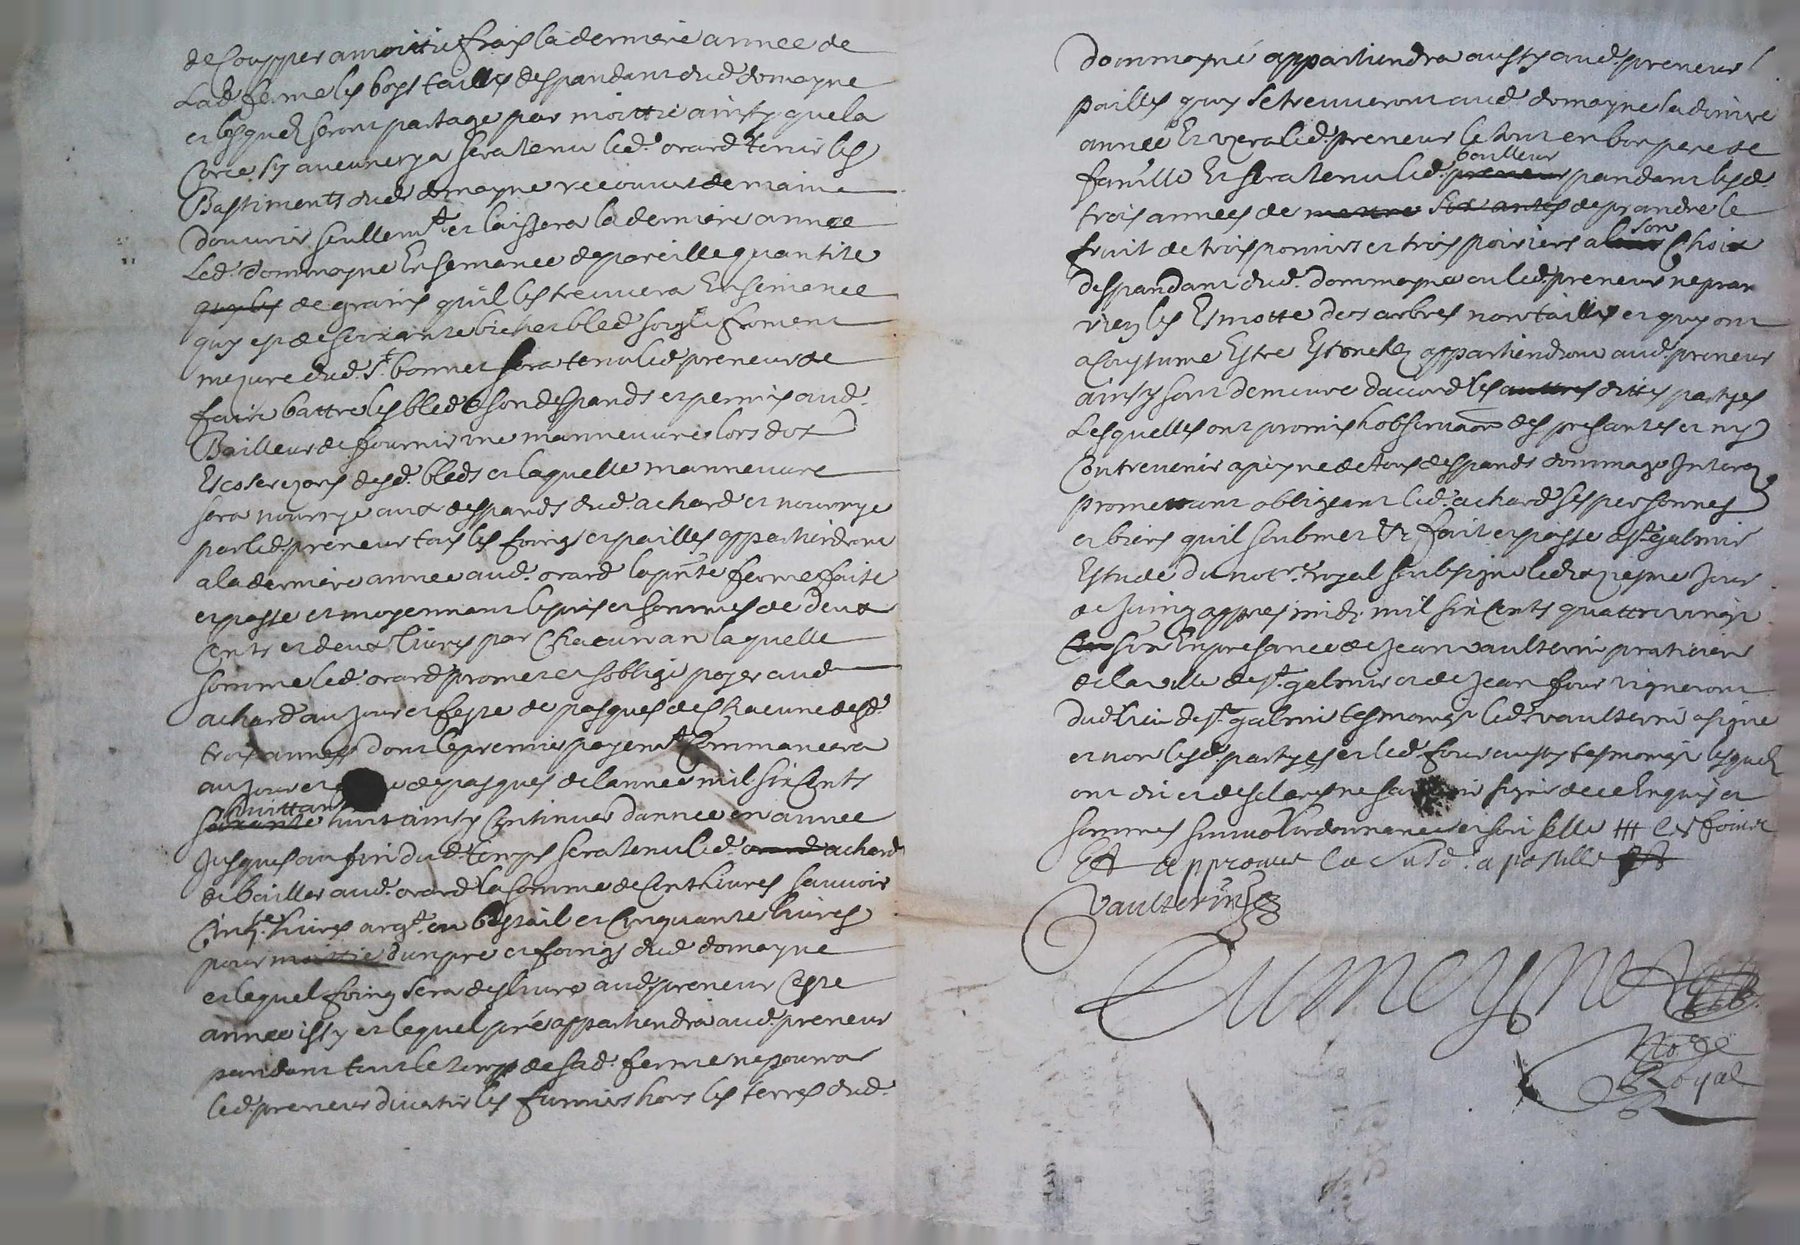 de Coupper a moittie frais la derniere annee de
Lad. ferme les boys taillis despandant dud. domayne
et lesquels seront partage par moittie ainsy que la
Corce sy aucune y a sera tenu led. orard tenir les
Bastiments dud. domayne recouvert de main
douvrir seullemt. et laissera la derniere annee
Led. dommayne Ensemance de pareille quantite
de grains quil les treuvera Ensemence
quy est de soixante bichet bled soigle froment
mezure dud. St. bonnet sera tenu led. preneur de
faire battre les bled a son despands et permis aud.
Bailleur de fournir une mannevure lors des
Escoserezons desd. bleds et laquelle mannevure
sera nourrye aux despands dud. achard et nourrye
par led. preneur tous les foings et pailles appartiendront
a la derniere annee aud. orard la pnte ferme faite
et passe et moyennant le pris et sommes de deux
Cents et deux livres par Chacun an laquelle
somme led. orard promet et soblige payer aud
achard au Jour et feste de pasques de Chacune desd.
trois annees dont le premier payemt. Commancera
au Jour et de pasques de lannee mil six Cents
huittante
huit ainsy Continuer dannee en annee
Jusques au fin dud. temps sera tenu led. achard
de bailler aud. orard la somme de Cent livres sauvoir
Cinqte. livres argt. ou bestail et Cinquante livres
pour moittie dun pre et foings dud. domayne
et lequel foing sera deslivre aud. preneur Ceste
annee issy et lequel pré appartiendra aud. preneur
pandant tout le temps de sad. ferme ne pourra
led. preneur divertir les fumiers hors les terres dud.
dommayne appartiendra aussy aud. preneur l
pailles quy se treuveront aud. domayne la derniere
annee Et uzera led. preneur le tout en bon pere de
bailleur
famille Et sera tenu led. preneur pandant lesd.
trois annees de mettre six antes de prandre le
son
fruit de trois pomiers et trois poiriers a Choix
despandant dud. dommayne ou led. preneur ne pran
rien les Esmotte des arbres non taillis et quy ont
acoustume Estre Estonchez appartiendront aud. preneur
ainsy sont demeure daccord les auttres dittes partyes
Lesquelles ont promis hobservaon des presantes et ny
Contrevenir a peyne de tous despands dommage Interez
promettant obligeant led. achard ses personnes
et biens quil soubmet &c fait et passe a St. galmie
Estude du notre. royal soubsigne le dixzesme Jour
de Juing appres midi mil six Cents quattre vingt
six En presance de Jean vaulterin praticien
de la ville de St. galmie et de Jean four vigneront
dud. lieu de St. galmie tesmoings led. vaulterin a signe
et non lesd. partyes et led. four aussy tesmoings lesquels
ont dit et desclares ne savoir signer de ce Enquis et
sommes suivant lordonnance et soit selle
approuve la susd. apostille
Vaulterin
Dumeynet
Nore
Royal